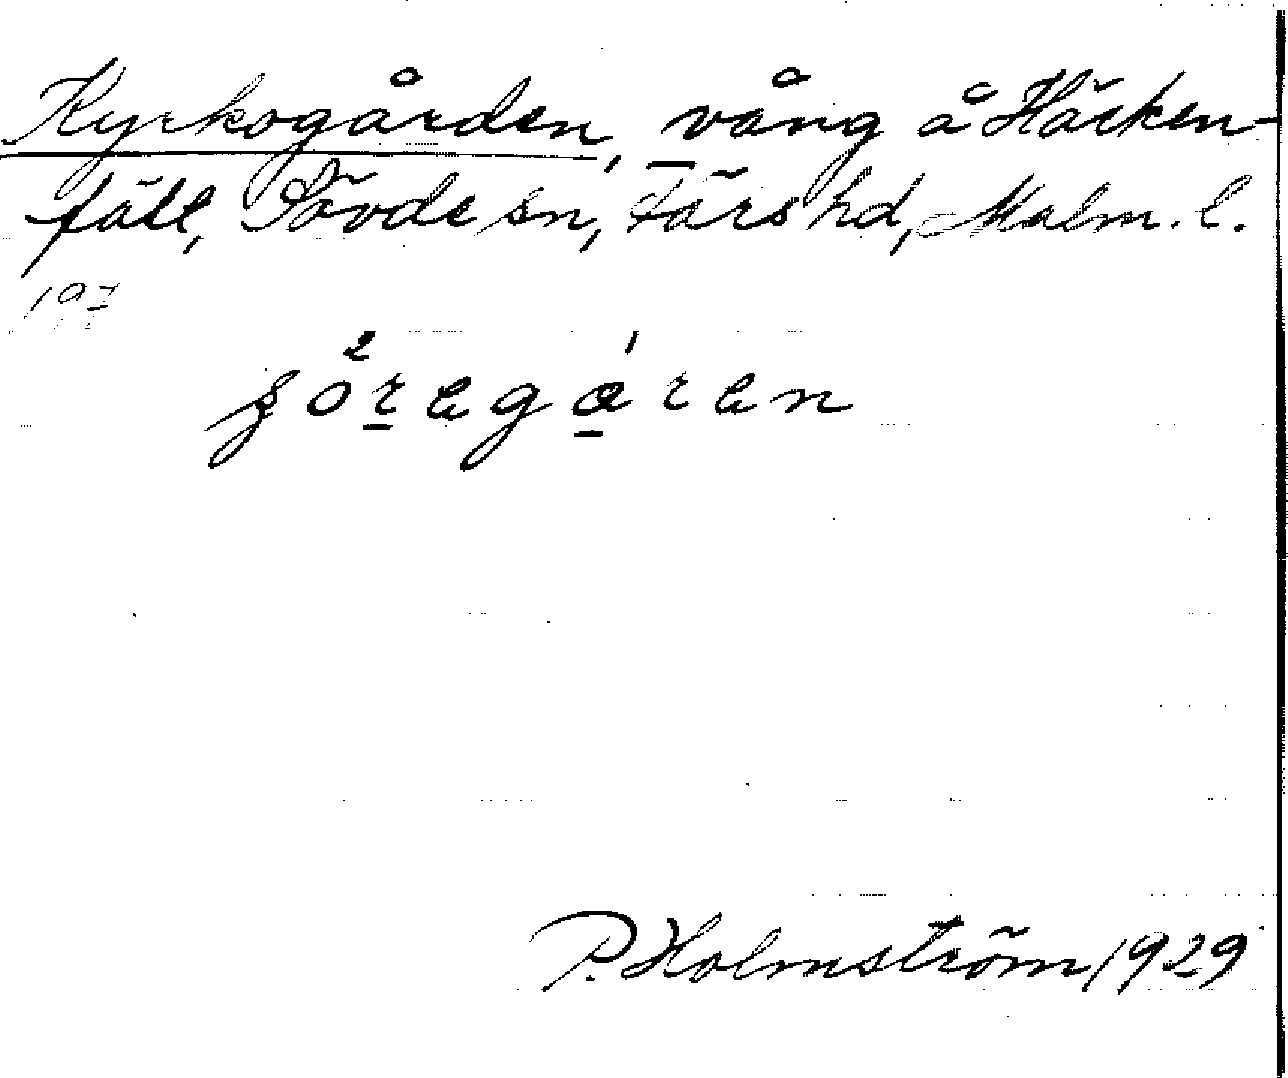 Kyrkogården, vång å Häcken-
fäll, Sövde sn, Färs hd, Malm. l.
197
P. Holmström 1929